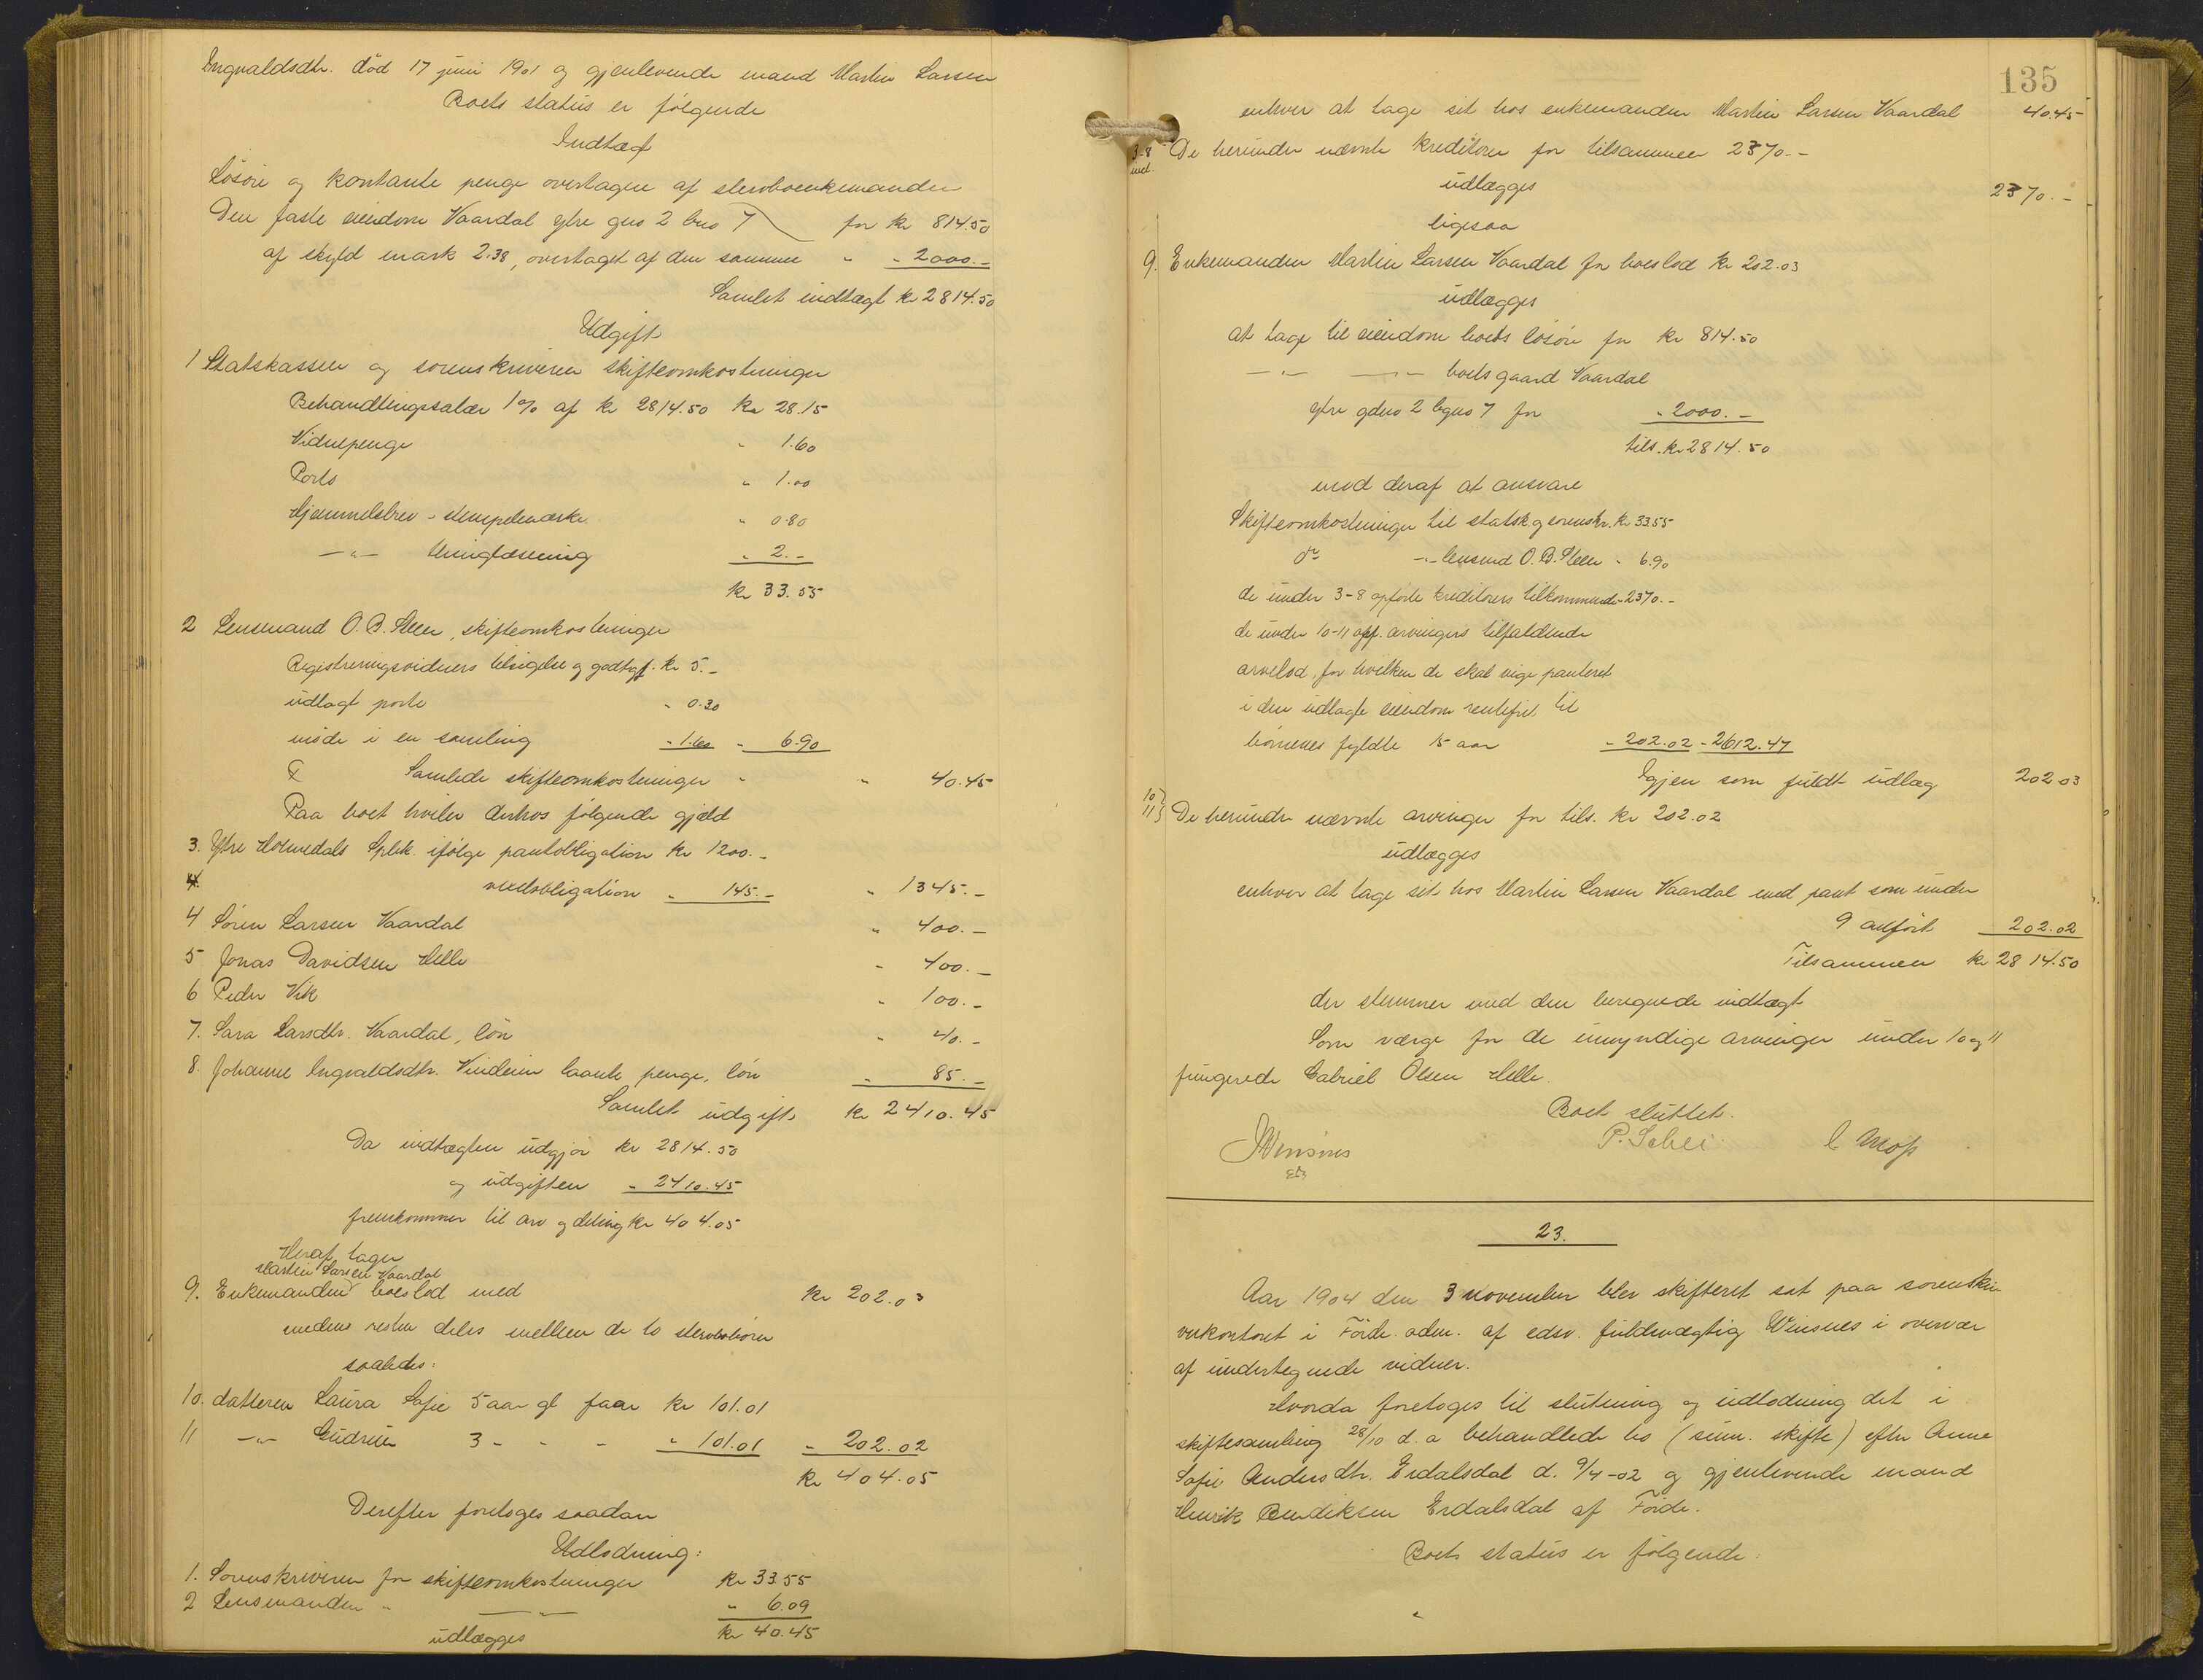 Ingvaldsdtr. død 17 juni 1901 og gjenlevende mand Martin Larsen
Boets status er følgende
Indtægt
Løsøre og kontante penge overtagen af stervboenkemanden
Den faste eiendom Vaardal ytre gno 2 bno 7 for kr 814.50
af skyld mark 2.38, overtaget af den samme " - 2000.-
Samlet indtægt kr 2814.50
Udgift
1 Statskassen og sorenskriveren skifteomkostninger
Behandlingssalær 1% af kr 2814.50 kr 28.15
Vidnepenge " 1.60
Porto " 1.00
Hjemmelsbrev - stempelmærke " 0.80
-"- thinglæsning " 2.-
kr 33.55
2 Lensmand O. B. Steen, skifteomkostninger
Registreringsvidners tilsigelse og godtgj. kr 5.-
udlagt porto " 0.30
møde i en samling " 1.60 " 6.90
Samlede skifteomkostninger " " 40.45
Paa boet hviler derhos følgende gjæld
3. Ytre Holmedals Spbk. ifølge pantobligation kr 1200.-
4. vexelobligation " 145.- " 1345.-
4 Søren Larsen Vaardal " 400.-
5 Jonas Davidsen Helle " 400.-
6 Peder Vik " 100.-
7. Sara Larsdtr. Vaardal, løn " 40.-
8. Johanne Ingvaldsdtr. laante penge, løn " 85.-
Samlet udgift kr 2410.45
Da indtægten udgjør kr 2814.50
og udgiften " 2410.45
fremkommer til arv og deling kr 404.05
Heraf tager
Martin Larsen Vaardal
9. Enkemanden boeslod med kr 202.03
medens resten deles mellem de to stervbobørn
saaledes:
10. datteren Laura Sofie 5 aar gl faar kr 101.01
11 -"- Gudrun 3 - - - " 101.01 " 202.02
kr 404.05
Derefter foretoges saadan
Udlodning:
1. Sorenskriveren for skifteomkostninger kr 33.55
2 Lensmanden " -"- " 6.09
udlægges kr 40.45
135
enhver at tage sit hos enkemanden Martin Larsen Vaardal 40.45
3-8 incl. De herunder nævnte kreditorer for tilsammen 2370.-
udlægges 2370.-
ligesaa
9. Enkemanden Martin Larsen Vaardal for boeslod kr 202.03
udlægges
at tage til eiendom boets løsøre for kr 814.50
-"- -"- boets gaard Vaardal
ytre gdno 2 bgno 7 for " 2000.-
tils. kr 2814.50
mod deraf at ansvare
Skifteomkostninger til statsk. og sorenskr. kr 33.55
do -"- lensmd O. B. Steen " 6.90
de under 3-8 opførte kreditorers tilkommende - 2370.-
de under 10-11 opf. arvingers tilfaldende
arvelod, for hvilken de skal nyde panteret
i den udlagte eiendom rentefrit til
børnenes fyldte 15 aar " 202.02 - 2612.47
Igjen som fuldt udlæg 202.03
10
11} De herunder nævnte arvinger for tils. kr 202.02
udlægges
enhver at tage sit hos Martin Larsen Vaardal med pant som under
9 anført 202.02
Tilsammen kr 2814.50
der stemmer med den beregnede indtægt
Som værge for de umyndige arvinger under 10 og 11
fungerede Gabriel Olsen Helle.
Boet sluttet.
JWinsnes P. Schei
23.
Aar 1904 den 3 november blev skifteret sat paa sorenskri-
verkontoret i Førde adm. af edsv. fuldmægtig Winsnes i overvær
af undertegnede vidner.
Hvorda foretoges til slutning og udlodning det i
skiftesamling 28/10 d. a behandlede bo (sum. skifte) efter Anne
Sofie Andersdtr. Erdalsdal d. 9/4-02 og gjenlevende mand
Henrik Bendiksen Erdalsdal af Førde.
Boets status er følgende: